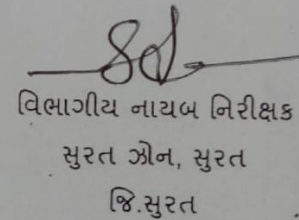 વિભાગીય નાયબ નિરીક્ષક
સુરત ઝોન, સુરત
જિ.સુરત